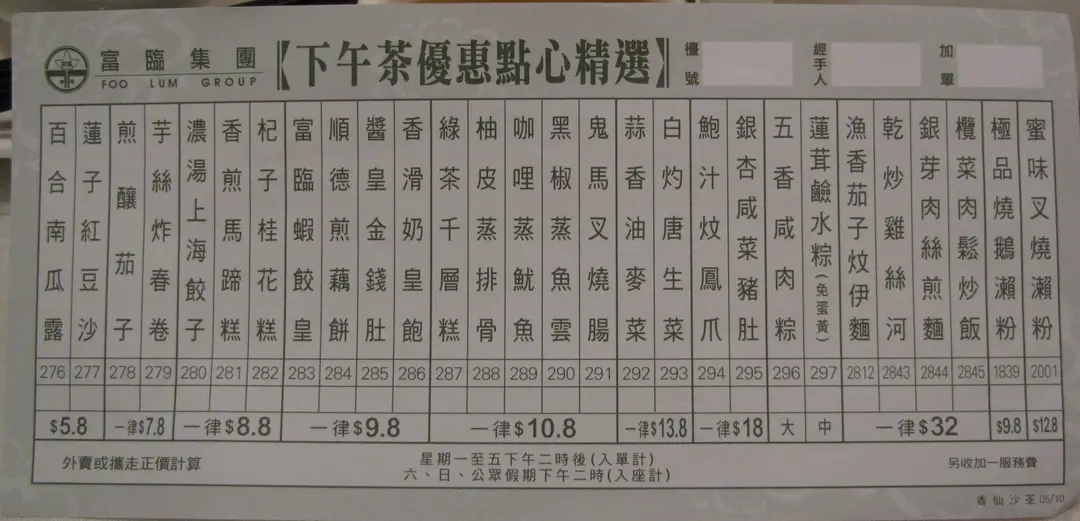 富臨集團
FOO LUM GROUP
【下午茶優惠點心精選】
檯號
經手人
加單
百合南瓜露 276
蓮子紅豆沙 277
煎釀茄子 278
芋絲炸春卷 279
濃湯上海餃子 280
香煎馬蹄糕 281
杞子桂花糕 282
富臨蝦餃皇 283
順德煎藕餅 284
醬皇金錢肚 285
香滑奶皇飽 286
綠茶千層糕 287
柚皮蒸排骨 288
咖哩蒸魷魚 289
黑椒蒸魚雲 290
鬼馬叉燒腸 291
蒜香油麥菜 292
白灼唐生菜 293
鮑汁炆鳳爪 294
銀杏咸菜豬肚 295
五香咸肉粽 296
蓮茸鹼水粽(免蛋黃) 297
漁香茄子炆伊麵 2812
乾炒雞絲河 2843
銀芽肉絲煎麵 2844
欖菜肉鬆炒飯 2845
極品燒鵝瀨粉 1839
蜜味叉燒瀨粉 2001
$5.8 一律$7.8 一律$8.8 一律$9.8 一律$10.8 一律$13.8 一律$18 大 中 一律$32 $9.8 $12.8
外賣或攜走正價計算
星期一至五下午二時後(入單計)
六、日、公眾假期下午二時(入座計)
另收加一服務費
香仙沙荃 05/10